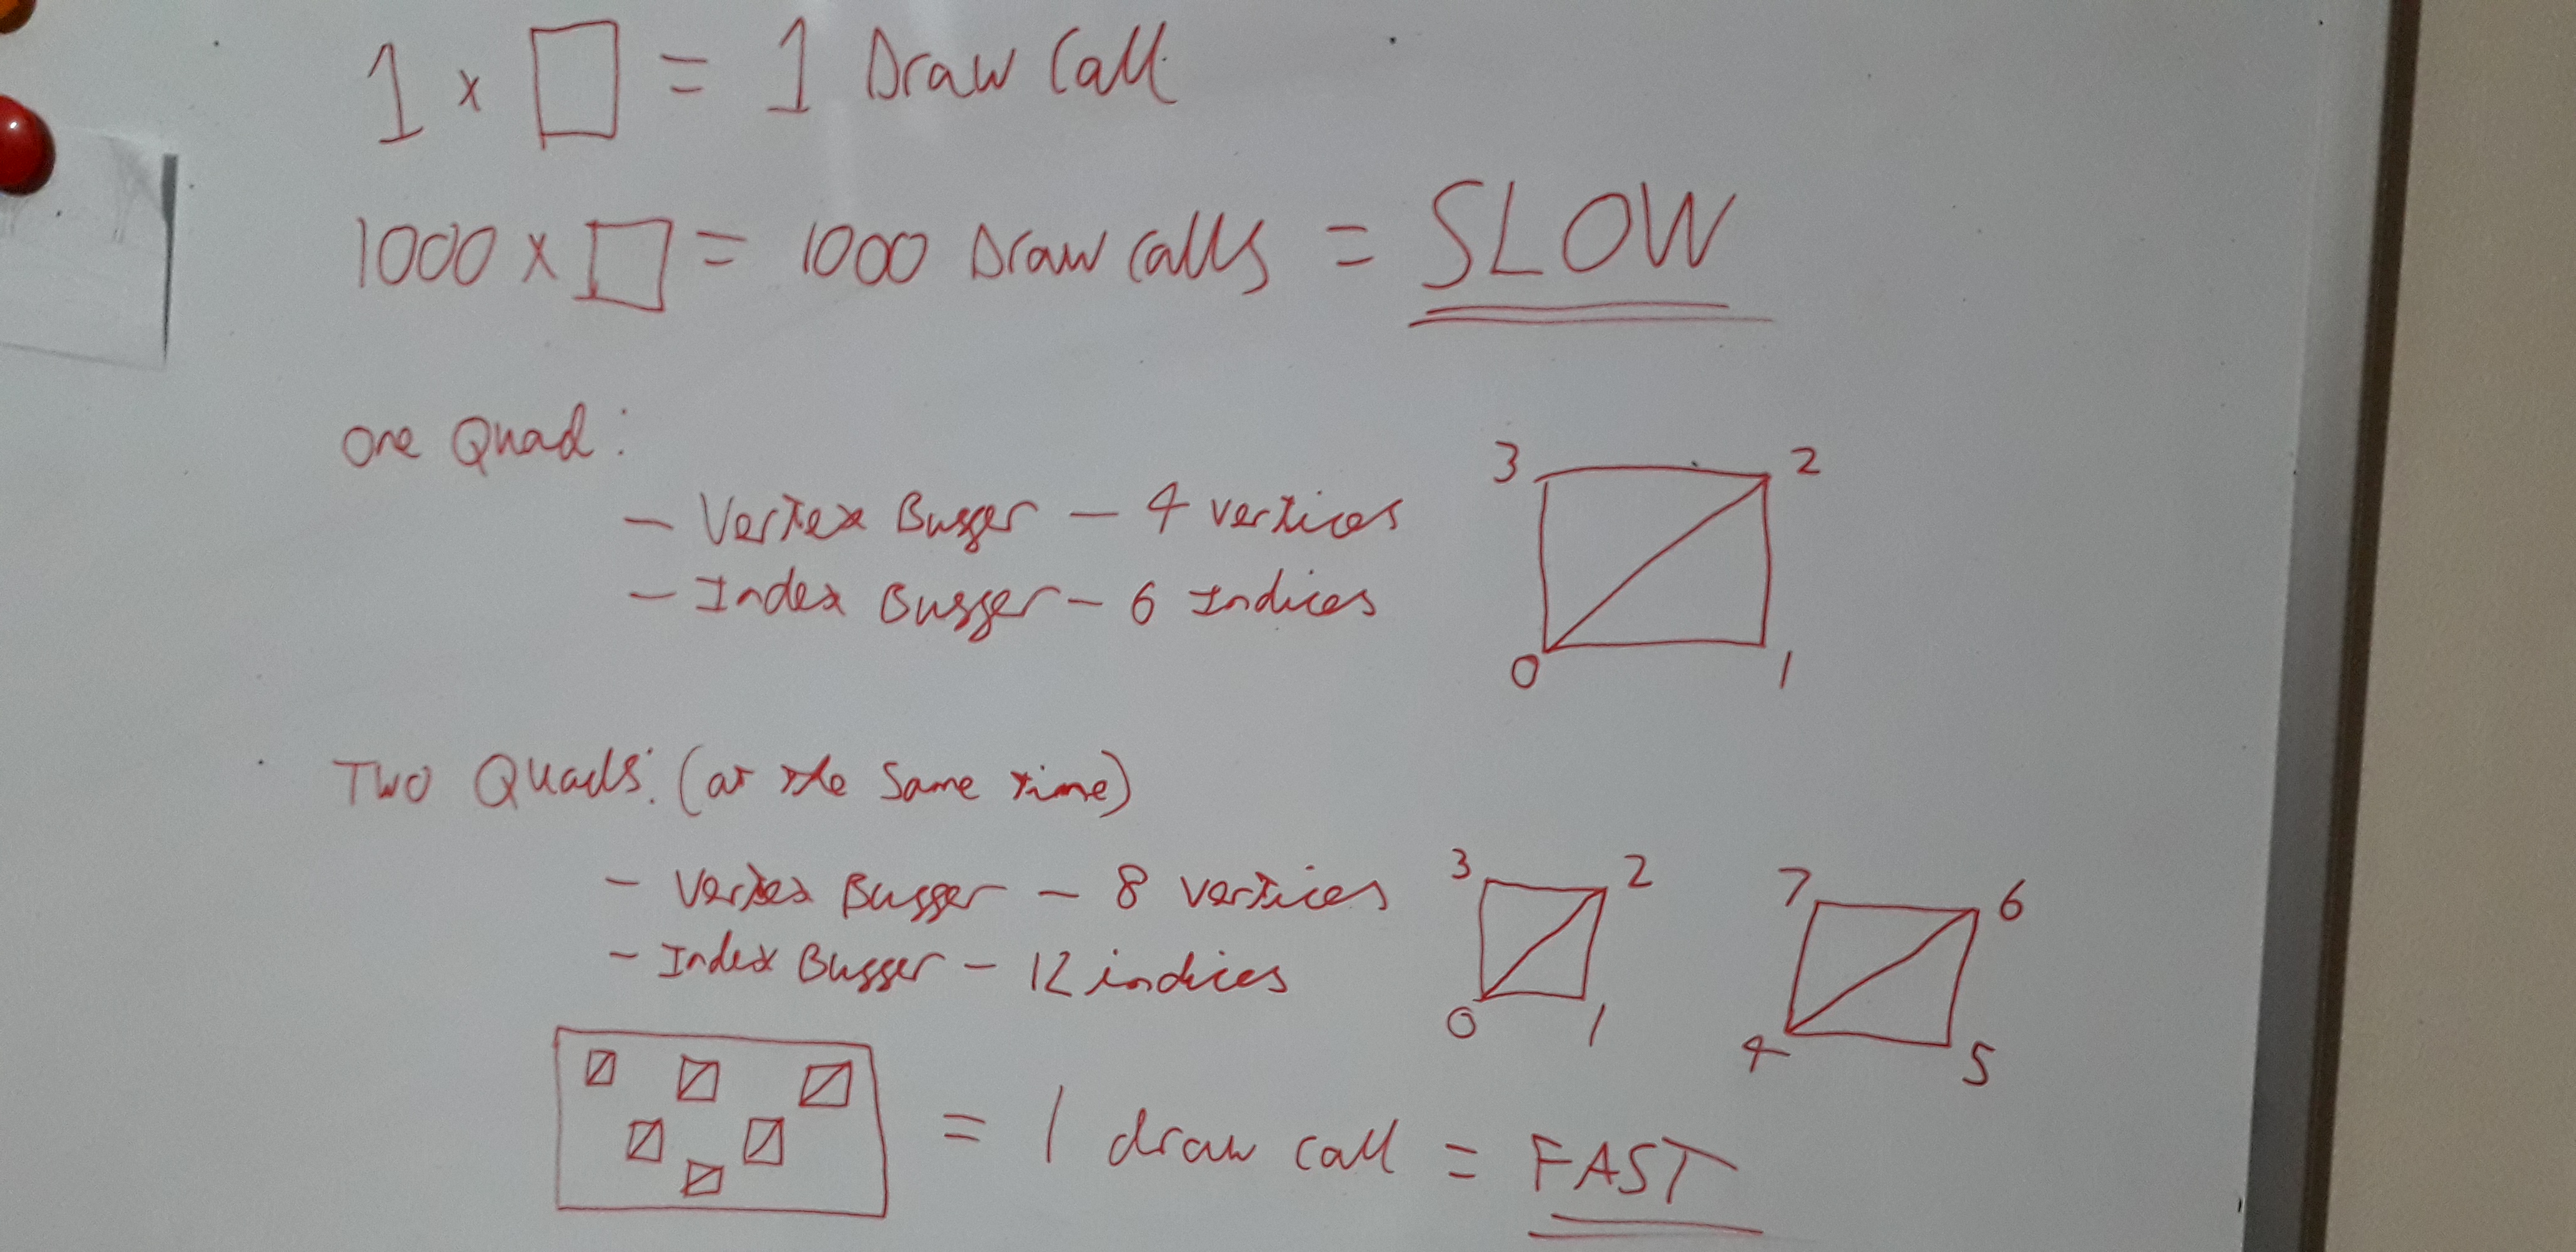 1 × □ = 1 Draw Call
1000 × □ = 1000 Draw Calls = SLOW
One Quad:
- Vertex Buffer - 4 vertices
- Index Buffer - 6 Indices
3 2
0 1
Two Quads: (at the same time)
- Vertex Buffer - 8 vertices
- Index Buffer - 12 indices
3 2 7 6
0 1 4 5
= 1 draw call = FAST